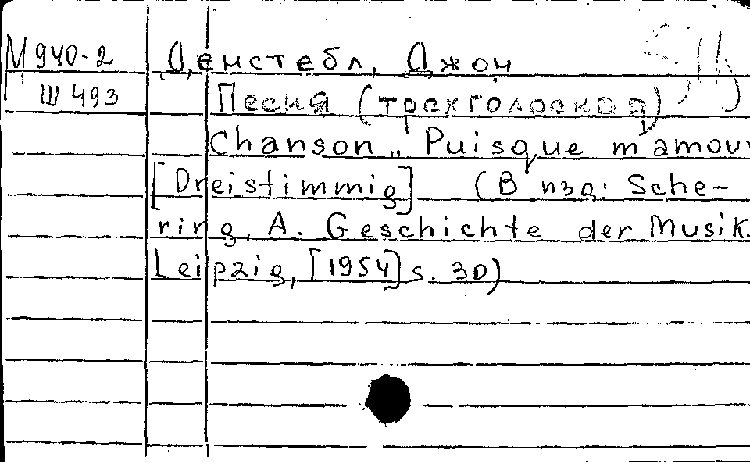 М 940-2
Ш 493
Денстебл, Джон
Песня (трехголосная)
Chanson „Puisque m'amour
[Dreistimmig] (В изд: Sche-
ring, A. Geschichte der Musik.
Leipzig, [1954] s. 30)